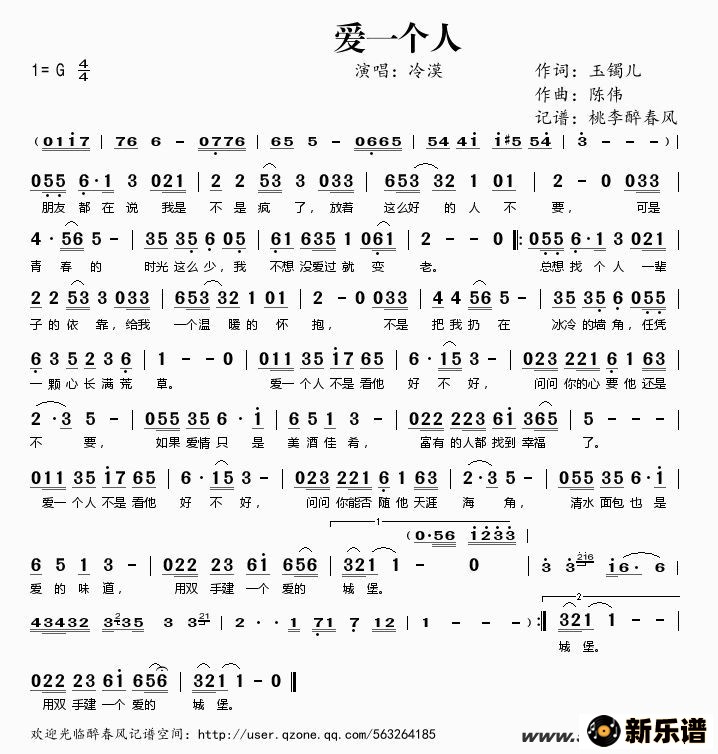 爱一个人
1=G 4/4
演唱：冷漠
作词：玉镯儿
作曲：陈伟
记谱：桃李醉春风
（0 1 i 7 | 7 6 6 - 0 7 7 6 | 6 5 5 - 0 6 6 5 | 5 4 4 i i #5 5 4 | 3 - - - ）|
0 5 5 6·1 3 0 2 1 | 2 2 5 3 3 0 3 3 | 6 5 3 3 2 1 0 1 | 2 - 0 0 3 3 |
朋友 都 在 说 我是 不 是 疯 了， 放着 这么好 的 人 不 要， 可是
4· 5 6 5 - | 3 5 3 5 6 0 5 | 6 1 6 3 5 1 0 6 1 | 2 - - 0 ‖: 0 5 5 6·1 3 0 2 1 |
青 春 的 时光 这么 少， 我 不想 没爱过 就 变 老。 总想 找 个 人 一辈
2 2 5 3 3 0 3 3 | 6 5 3 3 2 1 0 1 | 2 - 0 0 3 3 | 4 4 5 6 5 - | 3 5 3 5 6 0 5 5 |
子 的 依 靠， 给我 一个温 暖 的 怀 抱， 不是 把 我 扔 在 冰冷 的墙 角， 任凭
6 3 5 2 3 6 | 1 - - 0 | 0 1 1 3 5 i 7 6 5 | 6· 1 5 3 - | 0 2 3 2 2 1 6 1 6 3 |
一 颗 心 长 满 荒 草。 爱一 个人 不是 看他 好 不 好， 问问 你的心 要 他 还是
2· 3 5 - | 0 5 5 3 5 6· i | 6 5 1 3 - | 0 2 2 2 2 3 6 i 3 6 5 | 5 - - - |
不 要， 如果 爱情 只 是 美 酒 佳 肴， 富有 的人都 找到 幸福 了。
0 1 1 3 5 i 7 6 5 | 6· 1 5 3 - | 0 2 3 2 2 1 6 1 6 3 | 2· 3 5 - | 0 5 5 3 5 6· i |
爱一 个人 不是 看他 好 不 好， 问问 你能否 随 他 天涯 海 角， 清水 面包 也 是
1
（0·5 6 i 2 3 3 |
6 5 1 3 - | 0 2 2 2 3 6 i 6 5 6 | 3 2 1 1 - 0 | 3 3 2 1 6 i 6· - |
爱 的 味 道， 用双 手建 一个 爱的 城 堡。
4 3 4 3 2 3 2 3 5 3 3 21 | 2· · 1 7 1 7 1 2 | 1 - - - ）:‖ 2 3 2 1 1 - - |
城 堡。
0 2 2 2 3 6 i 6 5 6 | 3 2 1 1 - 0 ‖
用双 手建 一个 爱的 城 堡。
欢迎光临醉春风记谱空间：http://user.qzone.qq.com/563264185
www.
新乐谱